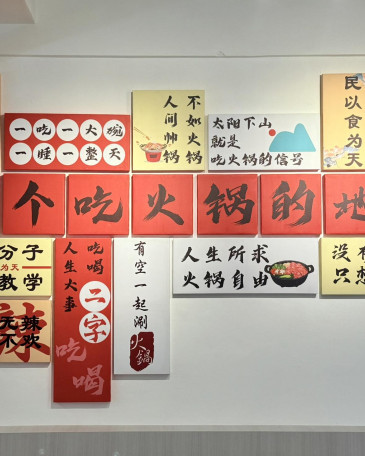 一吃一大碗
一睡一整天
不如火锅
人间帅锅
太阳下山
就是
吃火锅的信号
民以食为天
个吃火锅的地
分子
为天
教学
吃喝二字
人生大事
吃喝
有空一起涮
火锅
人生所求
火锅自由
没有
只想
无辣
不欢
辣